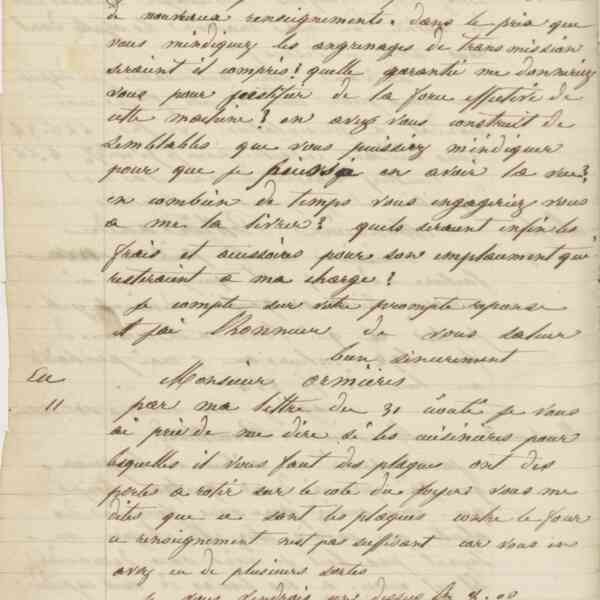 de nouveaux renseignements. dans le prix que
vous mindiquez les angrenages de transmission
seraient il compris? quelle garantie me donneriez
vous pour justifier de la force effective de
cette machine? en avez vous construit de
semblables que vous puissiez mindiquer
pour que je puisse en avoir la vue?
en combien de temps vous engageriez vous
a me la livrer? quels seraient enfin les
frais et accessoires pour son emplacement qui
resteraient a ma charge?
je compte sur votre prompte reponse
et jai lhonneur de vous saluer
bien sincerement
Monsieur Ormieres
11
par ma lettre du 31 aout je vous
ai prié de me dire si les cuisinieres pour
lesquelles il vous faut des plaques ont des
portes a rotir sur le coté du foyer vous me
dites que ce sont les plaques contre le four
ce renseignement nest pas suffisant car vous en
avez eu de plusieurs sortes
je vous dessus